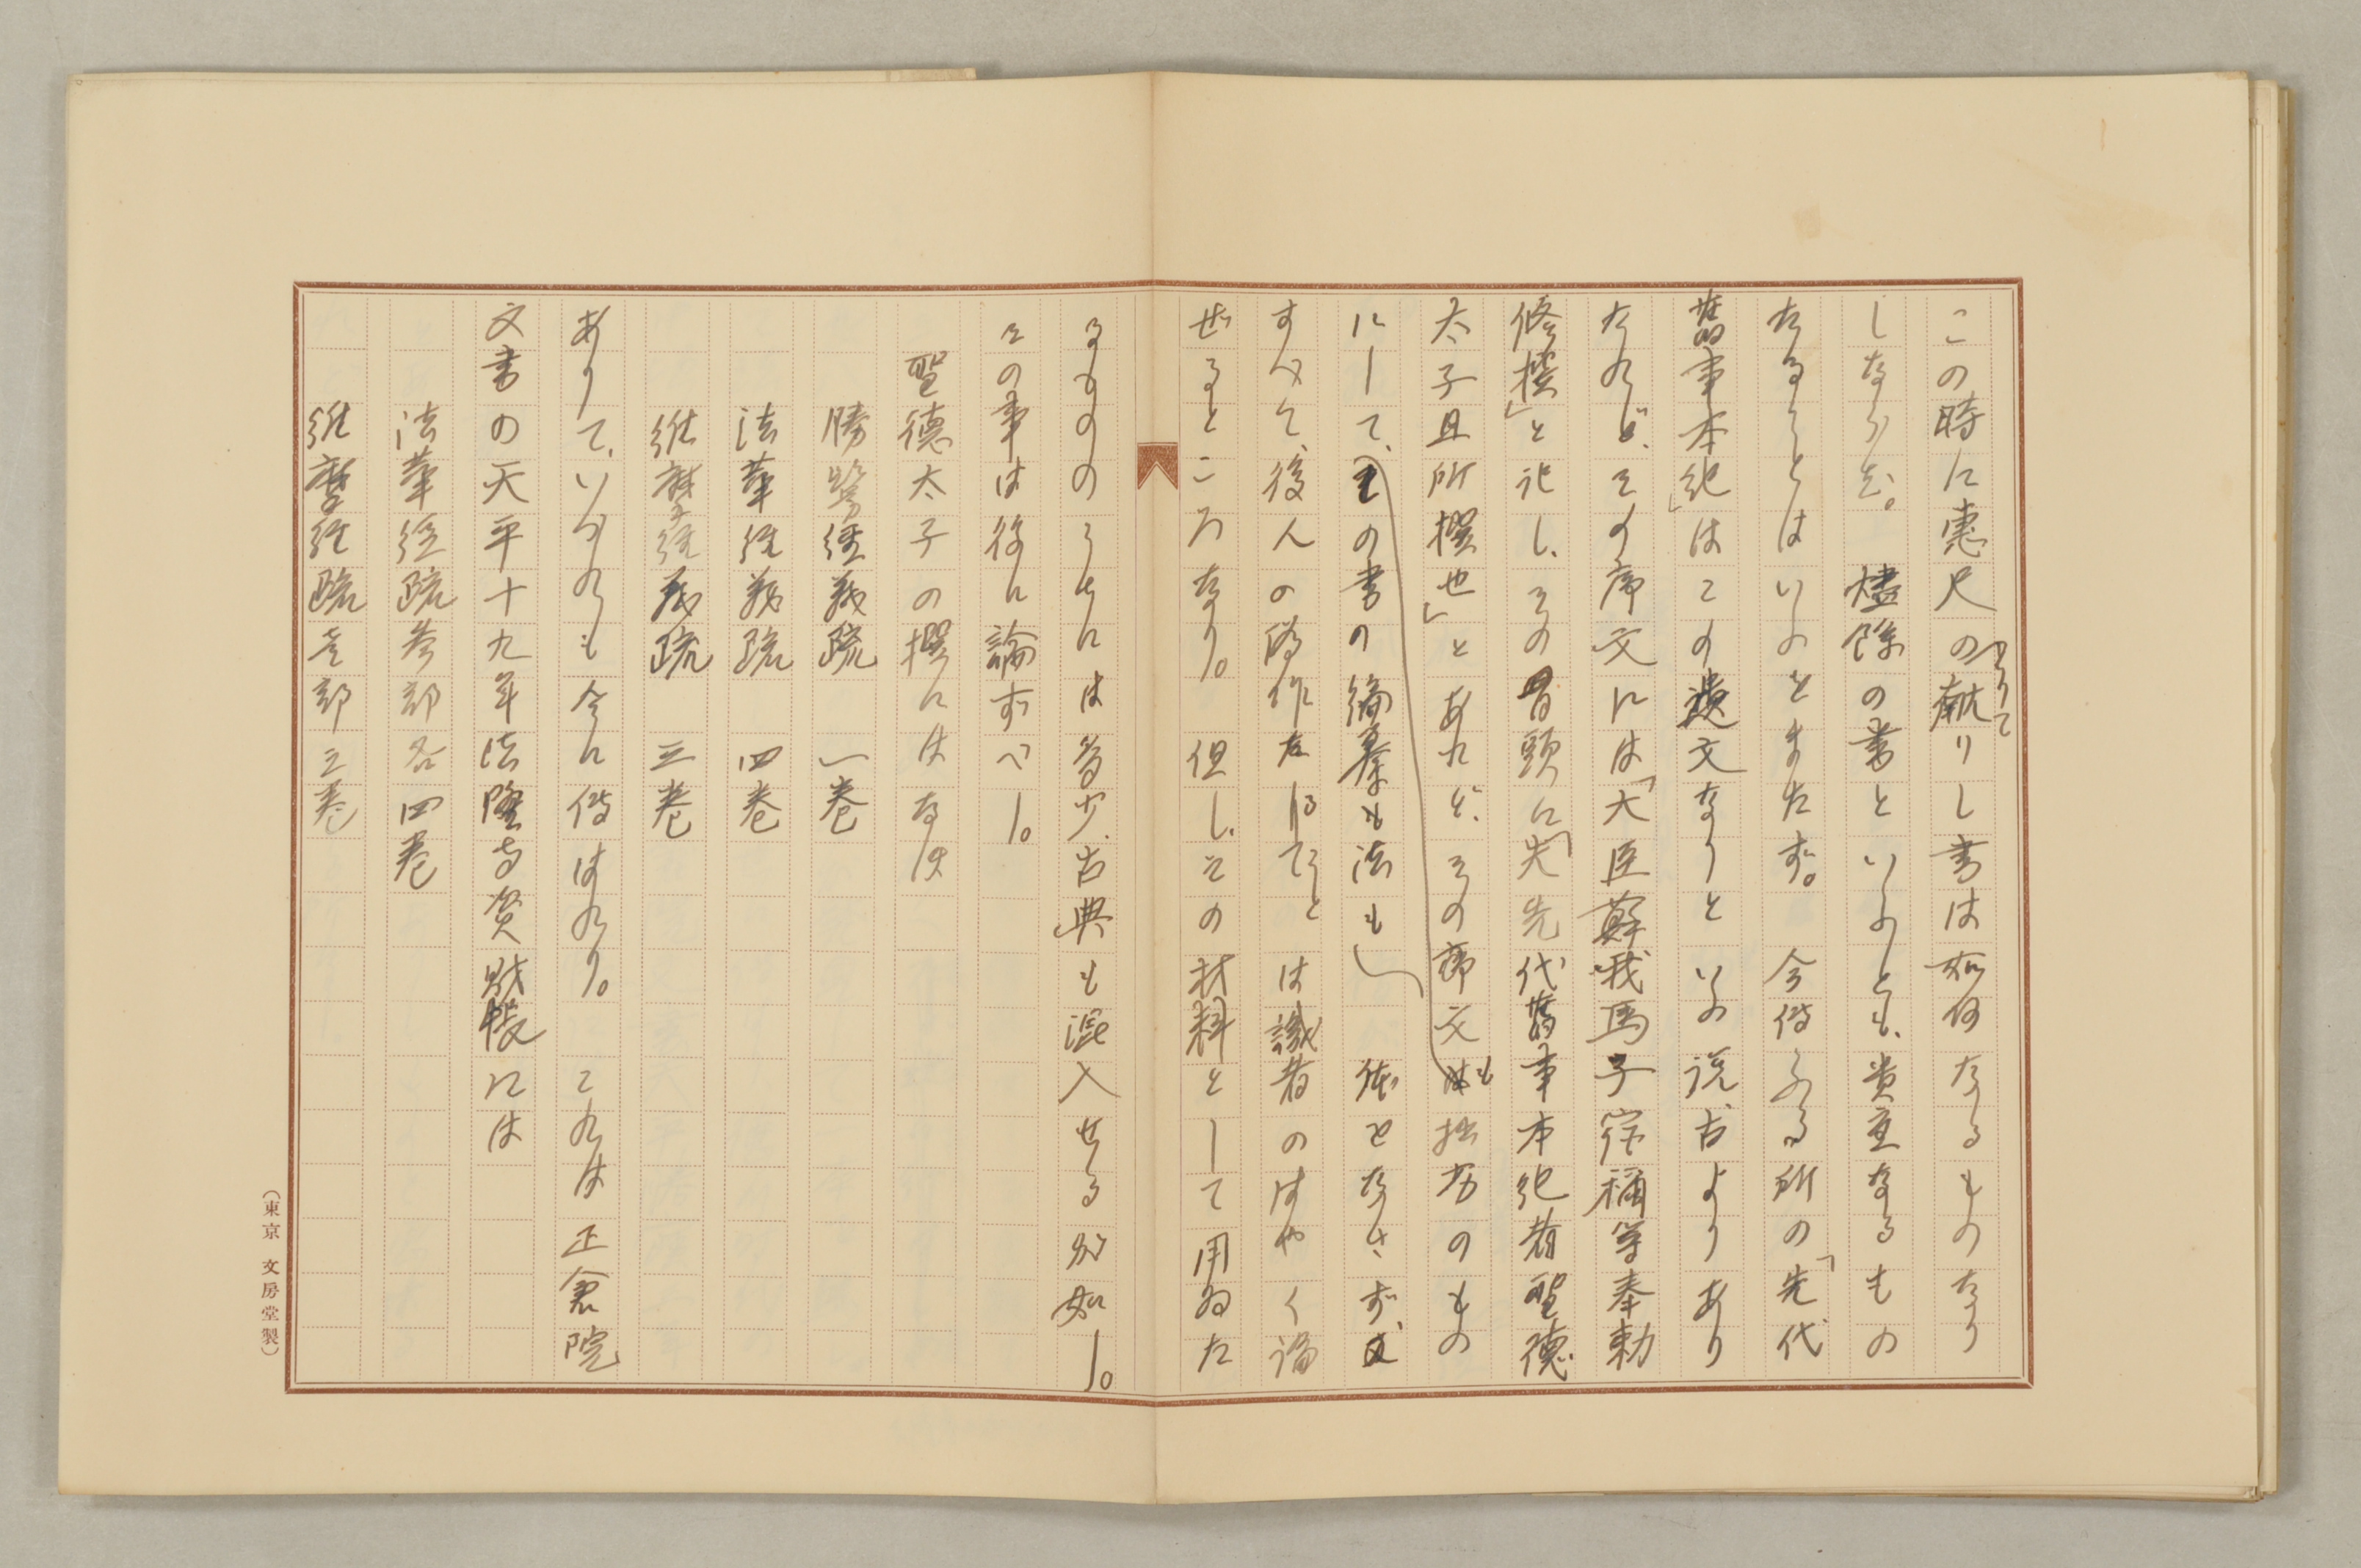 この時に恵尺のとりて献りし書は如何なるものなり
しならむ。燼餘の書といふとも、貴重なるもの
なることはいふをまたず。今傳ふる所の「先代
舊事本紀」はこの遺文なりといふ説、古よりあり
たれど、その序文には「大臣蘇我馬子宿禰等奉勅
修撰」と記し、その首頭に「先代舊事本紀者聖徳
太子且所撰也」とあれど、その序文も拙劣のもの
にして、その書の編纂も法も體をなさず、
すべて、後人の偽作たることは識者のはやく論
ぜるところなり。但し、その材料として用ゐた
るもののうちには多少古典も混入せるが如し。
この事は後に論ずべし。
聖徳太子の撰にはなほ
勝鬘經義疏 一巻
法華經義疏 四巻
維摩經義疏 三巻
ありて、いづれも今に傳はれり。これは正倉院
文書の天平十九年法隆寺資財帳には
法華經疏参部各四巻
維摩經疏壱部三巻
(東京 文房堂製)